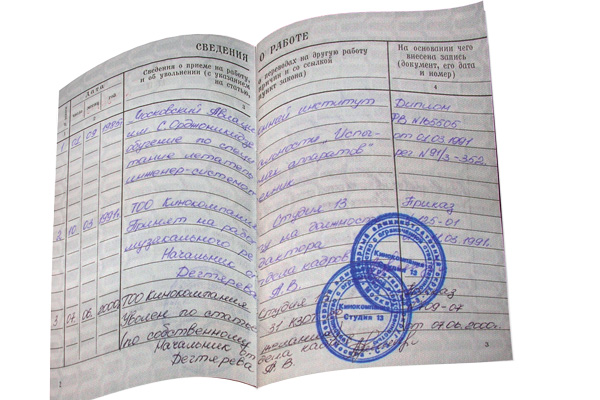 СВЕДЕНИЯ О РАБОТЕ
Дата
число
месяц
год
Сведения о приеме на работу, о переводах на другую работу
и об увольнении (с указанием причин и со ссылкой
на статью, пункт закона)
На основании чего
внесена запись
(документ, его дата
и номер)
3
4
1. 01. 09. 1985г. Московский Авиационный институт
им. С. Орджоникидзе
обучение по специальности "Испытание
летательных аппаратов"
инженер-системотехник
Диплом
ФВ №105505
от 01.03.1991
рег №91/3-352
2. 10. 03. 1991г. ТОО Кинокомпания Студия 13
Принят на работу на должность
музыкального редактора
Начальник отдела кадров
Дегтярева А.В.
Приказ
125-01
03.1991.
3. 07. 06. 2000г. ТОО Кинокомпания Студия
Уволен по статье 31 КЗОТ
(по собственному желанию
Начальник отдела кадров
Дегтярева А.В.
от 07.06.2000г.
Кинокомпания
Студия 13
Кинокомпания
Студия 13
Москва
3